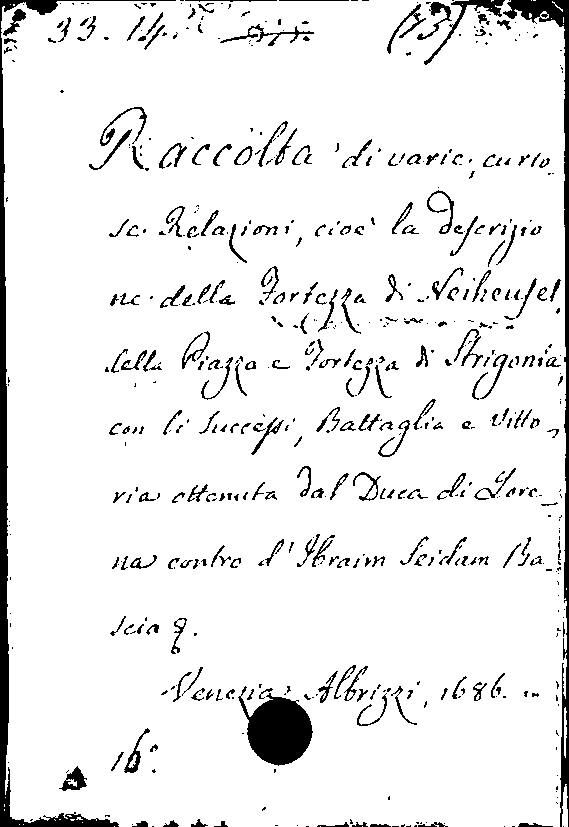 33. 14. (13)
Raccolta di varie, curio-
se Relazioni, cioe' la descrizio
ne della Fortezza di Neiheusel,
della Piazza e Fortezza di Strigonia,
con li Successi, Battaglia e Vitto-
ria ottenuta dal Duca di Lore-
na contro d'Ibraim Seidam Ba-
scia &.
Venezia, Albrizzi, 1686. in
16°.